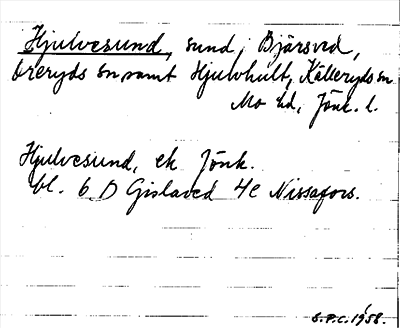 Hjulvesund, sund, Bjärsved,
Öreryds sn samt Hjulhult, Kålleryds sn
Mo hd, Jönk. l.
Hjulvesund, ek Jönk.
bl. 6 D Gislaved 4e Nissafors.
S.P.C. 1958.